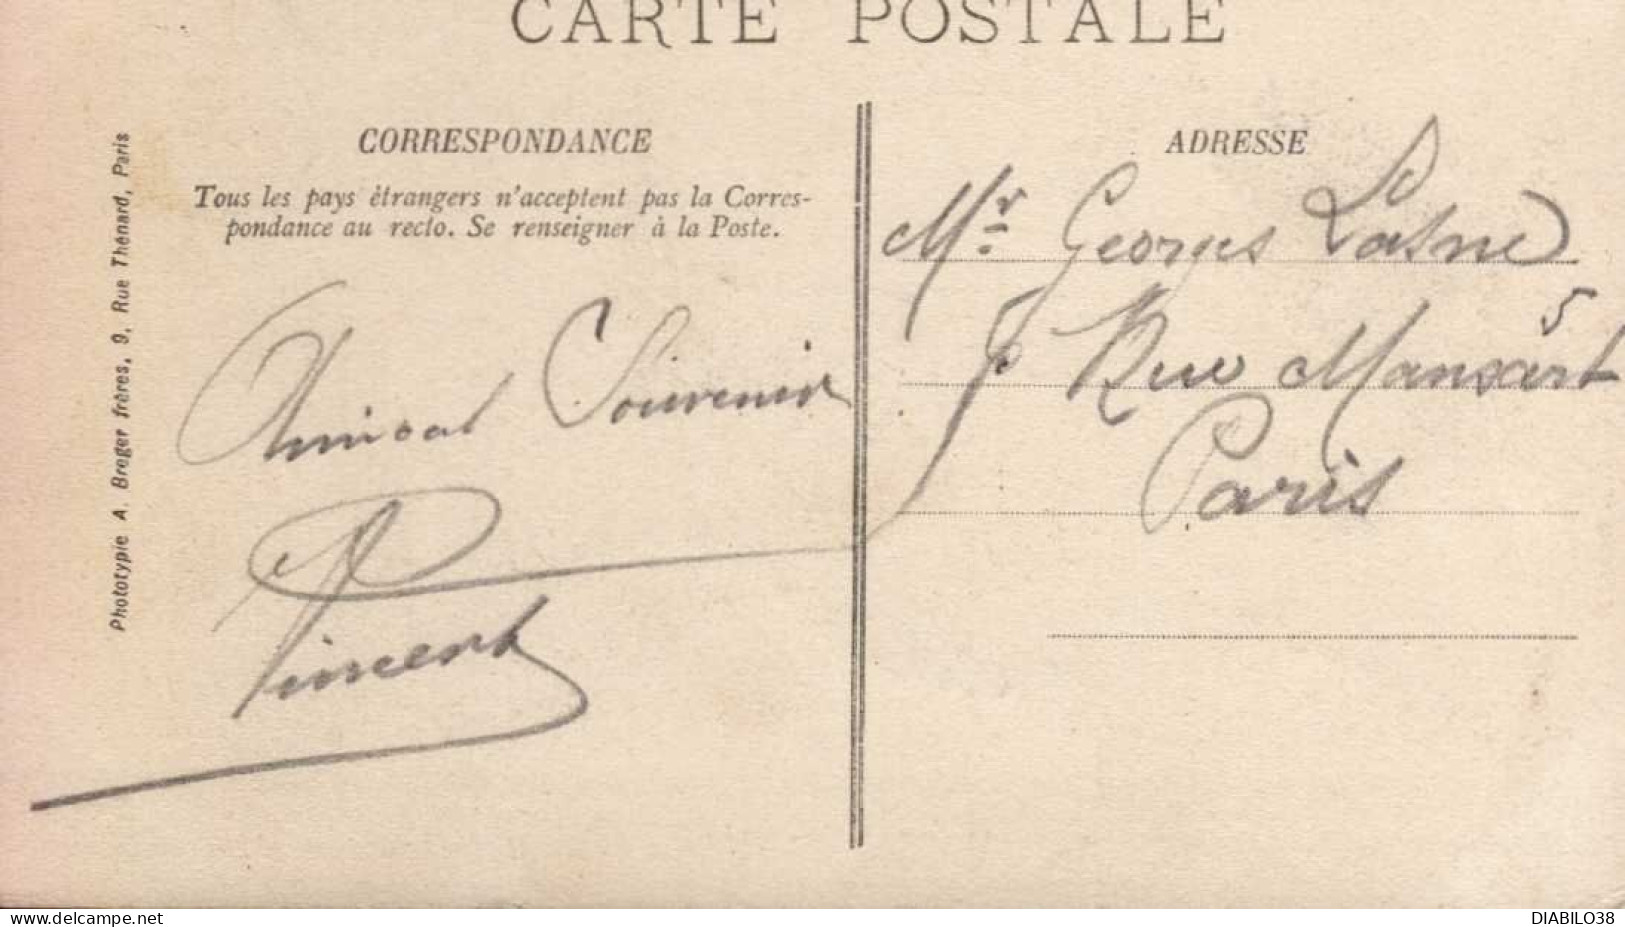 CARTE POSTALE
CORRESPONDANCE
Tous les pays étrangers n'acceptent pas la Corres-
pondance au recto. Se renseigner à la Poste.
Amical Souvenir
Vincent
Phototypie A. Breger frères, 9, Rue Thénard, Paris
ADRESSE
Mr Georges Lasne
5
Rue Mansart
Paris
delcampe.net
DIABILO38